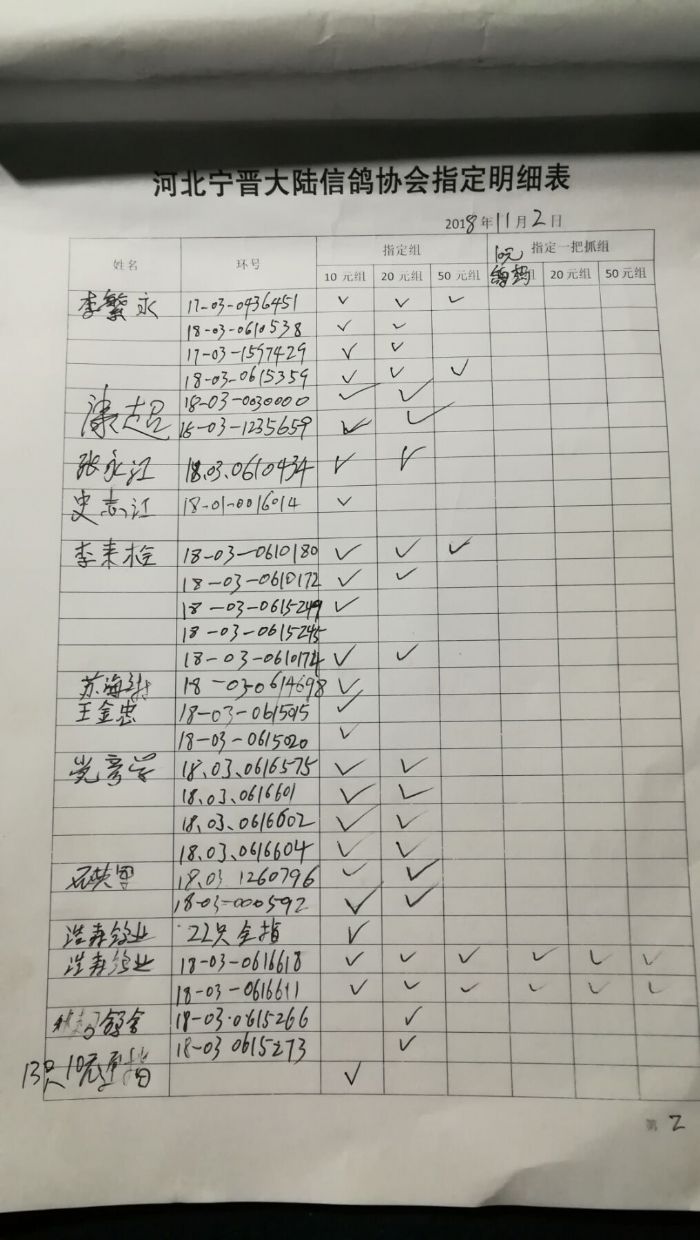 河北宁晋大陆信鸽协会指定明细表
2018年11月2日
姓名 环号 指定组 指定一把抓组
10元组 20元组 50元组 组 20元组 50元组
李繁永 17-03-0436451 ✓ ✓ ✓
18-03-0610538 ✓ ✓
17-03-1597429 ✓ ✓
18-03-0615359 ✓ ✓ ✓
18-03-0030000 ✓ ✓
超 16-03-1235659 ✓ ✓
张永江 18.03.0610434 ✓ ✓
史志江 18-01-0016014 ✓
李未栓 18-03-0610180 ✓ ✓ ✓
18-03-0610172 ✓ ✓
18-03-0615249 ✓
18-03-0615245
18-03-0610174 ✓ ✓
苏海 18-030614698 ✓
王金忠 18-03-061515 ✓
18-03-0615020 ✓
18.03.0616575 ✓ ✓
18.03.0616601 ✓ ✓
18.03.0616602 ✓ ✓
18.03.0616604 ✓ ✓
18.03 1260796 ✓ ✓
18-03-000592 ✓ ✓
浩森鸽业 22只全指 ✓
浩森鸽业 18-03-0616618 ✓ ✓ ✓ ✓ ✓ ✓
18-03-0616611 ✓ ✓ ✓ ✓ ✓ ✓
鸽舍 18-03-0615266 ✓
18-03 0615273 ✓
13只10元全指 ✓
第 2